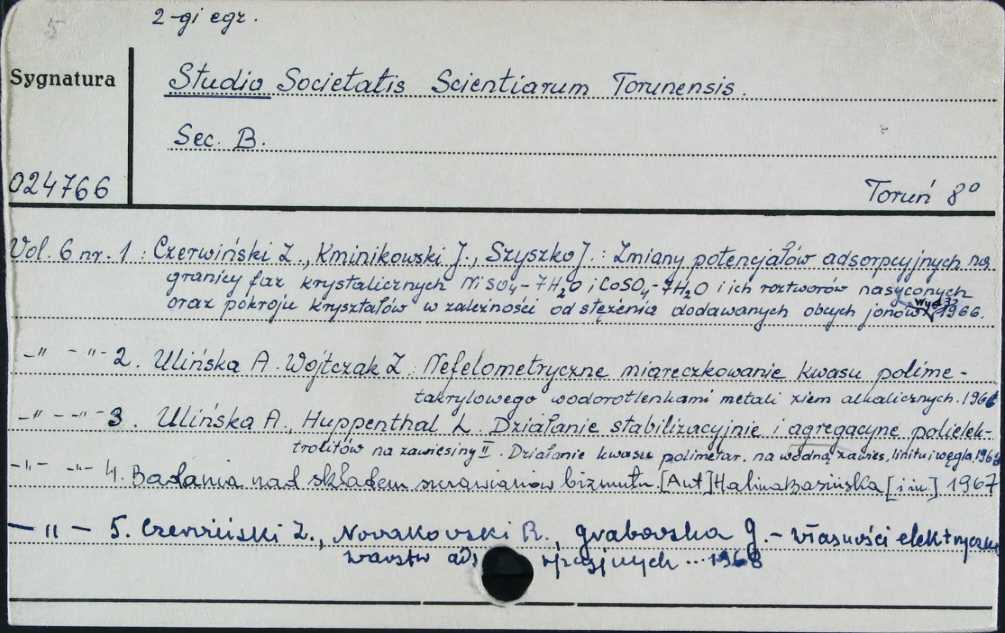 5
2-gi egz.
Sygnatura
Studia Societatis Scientiarum Torunensis.
Sec. B.
024766
Toruń 8°
Vol. 6 nr. 1 : Czerwiński Z., Kminikowski J., Szyszko J. : Zmiany potencjałów adsorpcyjnych na
granicy faz krystalicznych NiSO4-7H2O i CoSO4-7H2O i ich roztworów nasyconych
oraz pokroju kryształów w zależności od stężenia dodawanych obcych jonów 1966.
-"- -"- 2. Ulińska A. Wojtczak Z. Nefelometryczne miareczkowanie kwasu polime-
takrylowego wodorotlenkami metali ziem alkalicznych. 1966
-"- -"- 3. Ulińska A., Huppenthal L. Działanie stabilizacyjnie i agregacyjne polielek-
trolitów na zawiesiny II. Działanie kwasu polimetar. na wodną zawies.
-"- -"- 4. Badania nad składem szczawianów bizmutu. [Aut] Halina Basińska [i in] 1967
- " - 5. Czerwiński Z., Nowakowski R., Grabowska G. - własności elektryczne
warstw ads rpcyjnych ... 1968